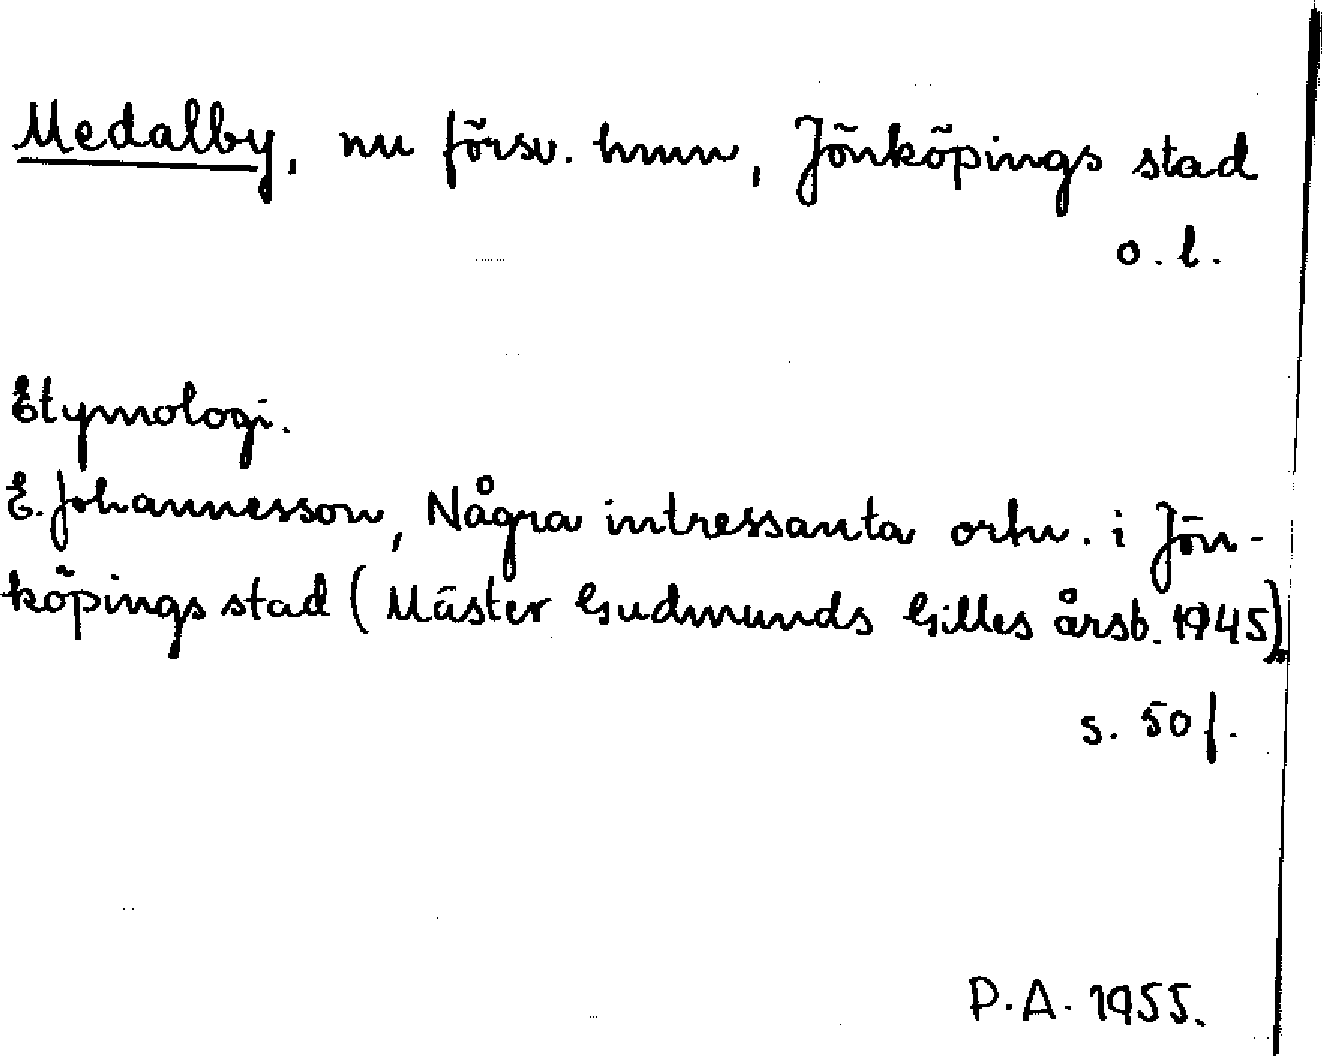 Medalby, nu försv. hmn, Jönköpings stad
o. l.
Etymologi.
E. Johannesson, Några intressanta ortn. i Jön-
köpings stad (Mäster Gudmunds Gilles årsb. 1945).
s. 50 f.
P.A. 1955.